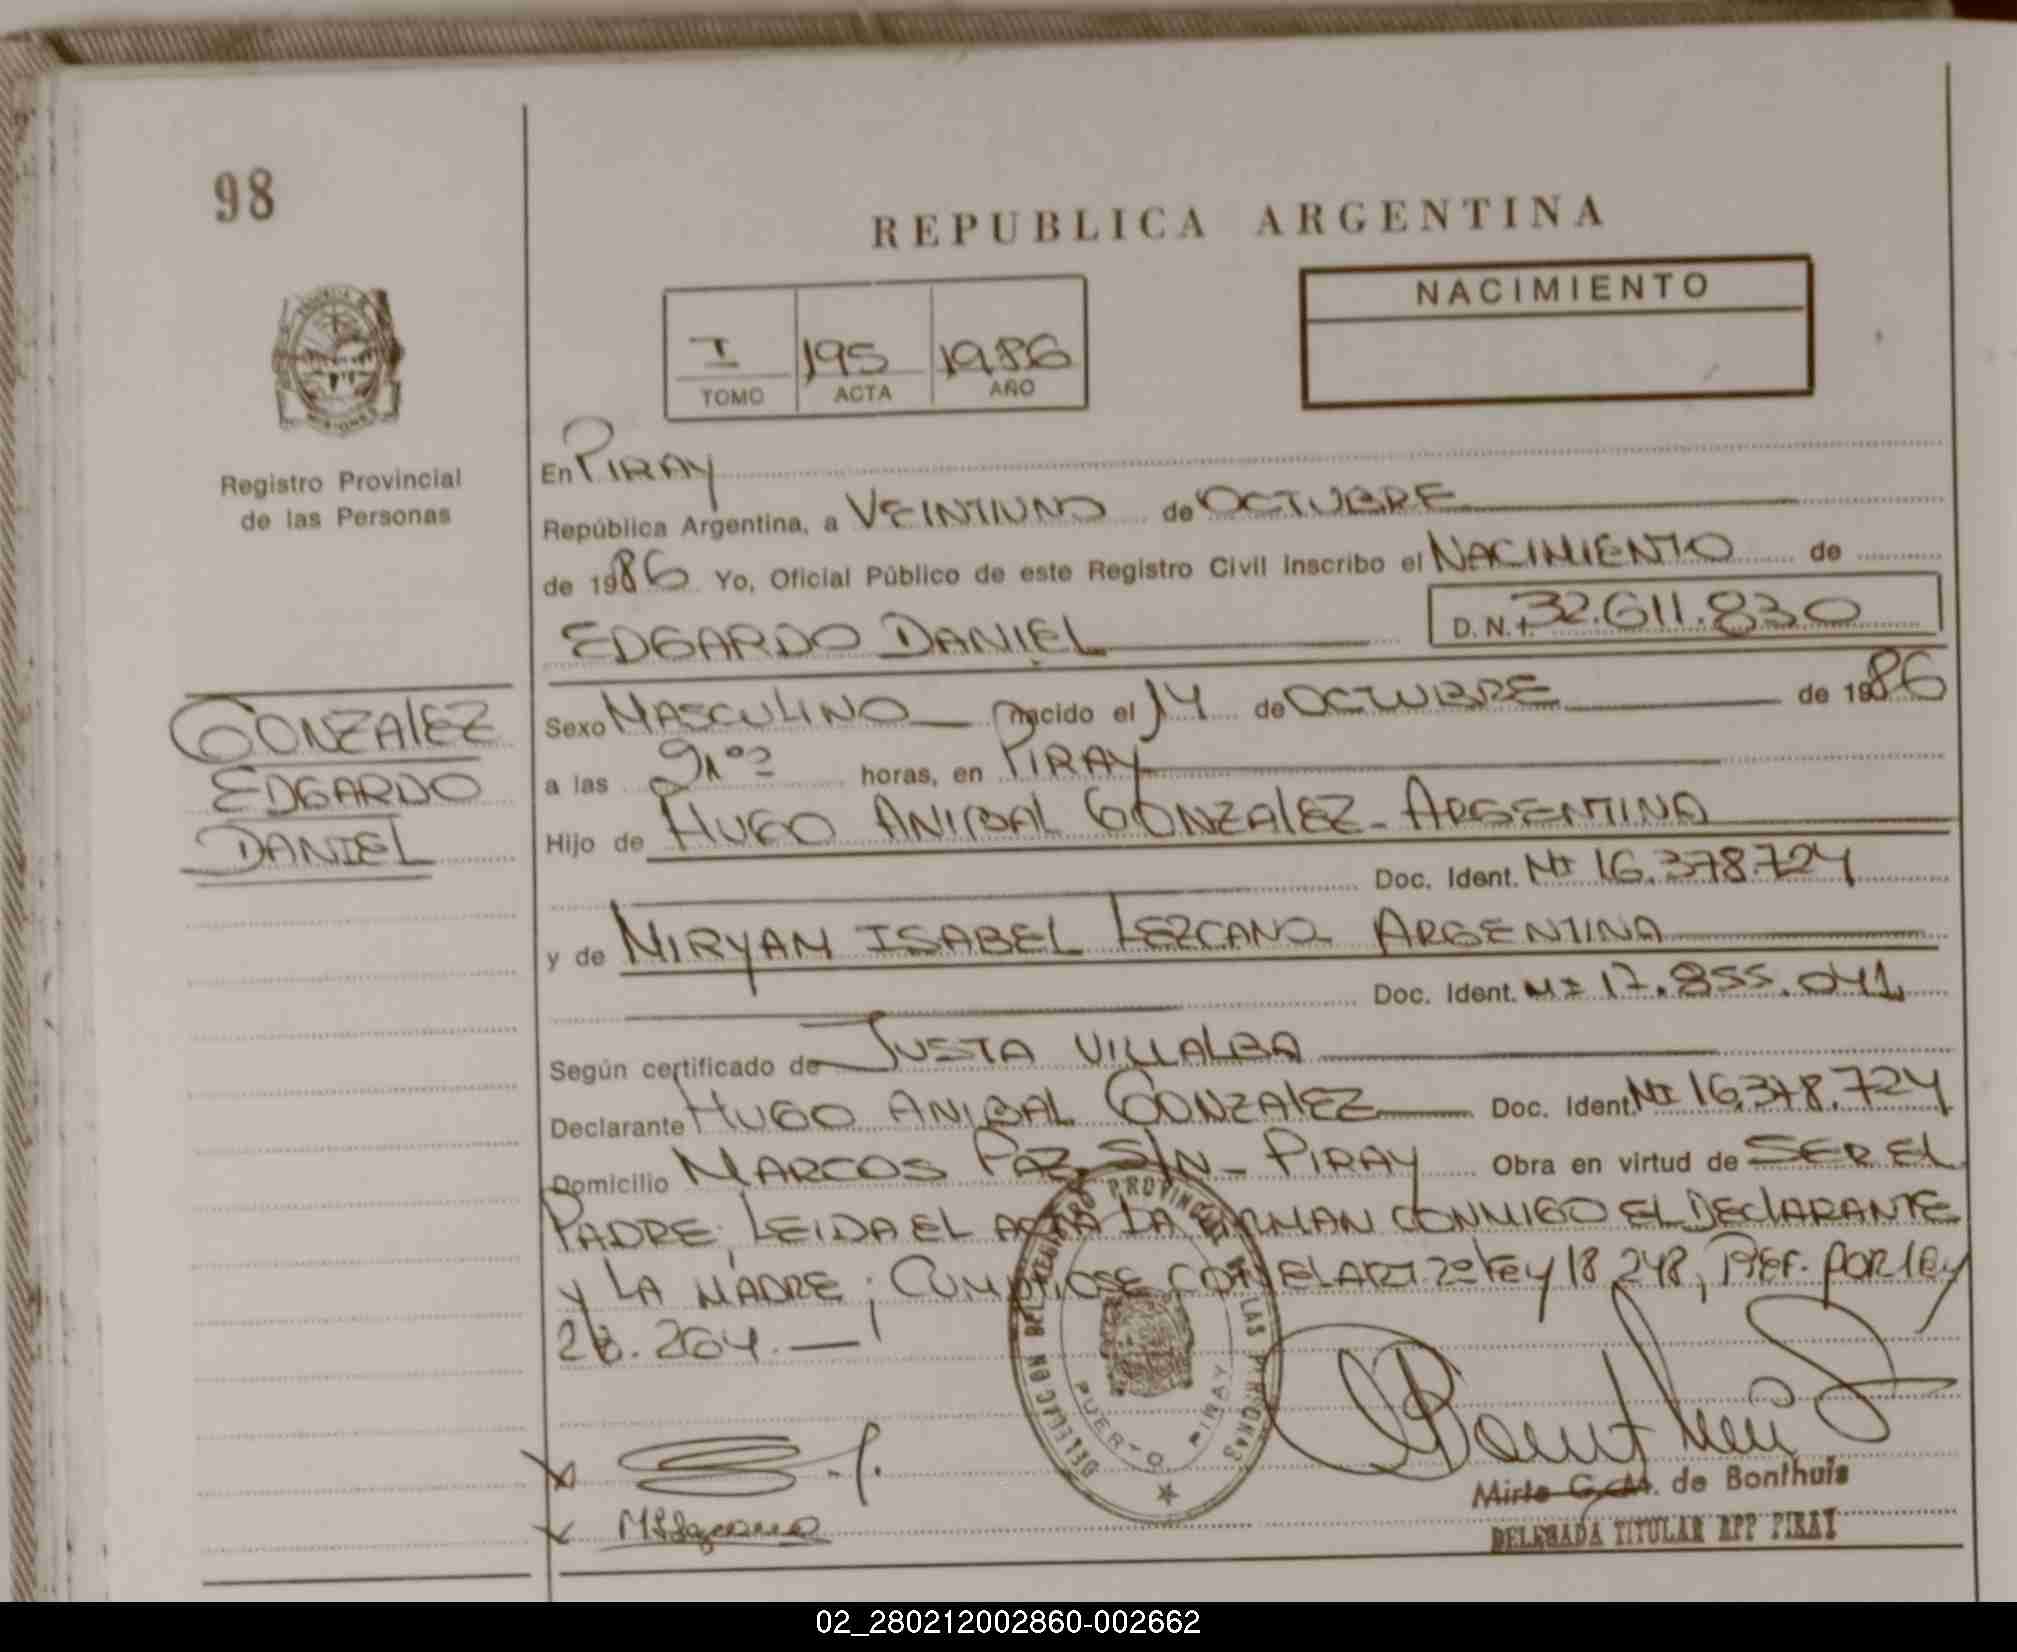 98
REPUBLICA ARGENTINA
NACIMIENTO
I 195 1986
TOMO ACTA AÑO
Registro Provincial
de las Personas
En PIRAY
República Argentina, a VEINTIUNO de OCTUBRE
de 1986 Yo, Oficial Público de este Registro Civil Inscribo el NACIMIENTO de
EDGARDO DANIEL D.N.I. 32.611.830
GONZALEZ
EDGARDO
DANIEL
Sexo MASCULINO nacido el 14 de OCTUBRE de 1986
a las horas, en PIRAY
Hijo de HUGO ANIBAL GONZALEZ - ARGENTINA
Doc. Ident. MI 16.378.724
y de MIRYAM ISABEL LEZCANO ARGENTINA
Doc. Ident. MI 17.855.041
Según certificado de JUSTA VILLALBA
Declarante HUGO ANIBAL GONZALEZ Doc. Ident. MI 16.378.724
Domicilio MARCOS PAZ S/N - PIRAY Obra en virtud de SER EL
PADRE; LEIDA EL ACTA LA FIRMAN CONMIGO EL DECLARANTE
y LA MADRE; CUMPLIOSE CON EL ART. 2º Ley 18.248, por ley
264.
DELEGACION DEL REGISTRO PROVINCIAL DE LAS PERSONAS
PUERTO PIRAY
Mirta G. M. de Bonthuis
DELEGADA TITULAR RPP PIRAY
02_280212002860-002662